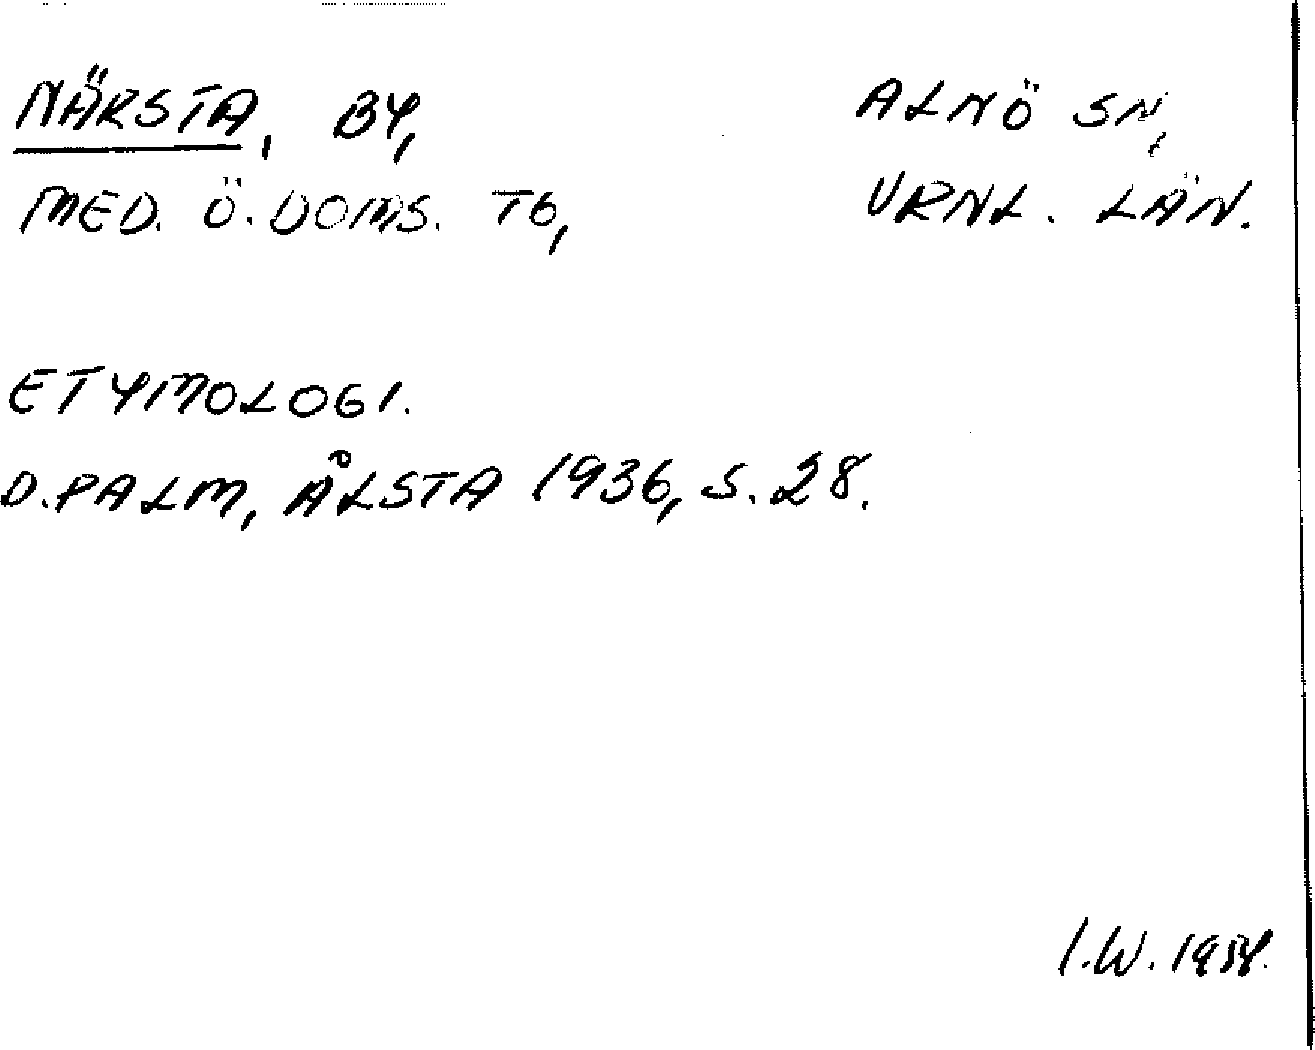 NÄRSTA, BY, ALNÖ SN,
MED. Ö. DOMS. TG, VRNL. LÄN.
ETYMOLOGI.
D. PALM, ÅLSTA 1936, S. 28.
I.W.